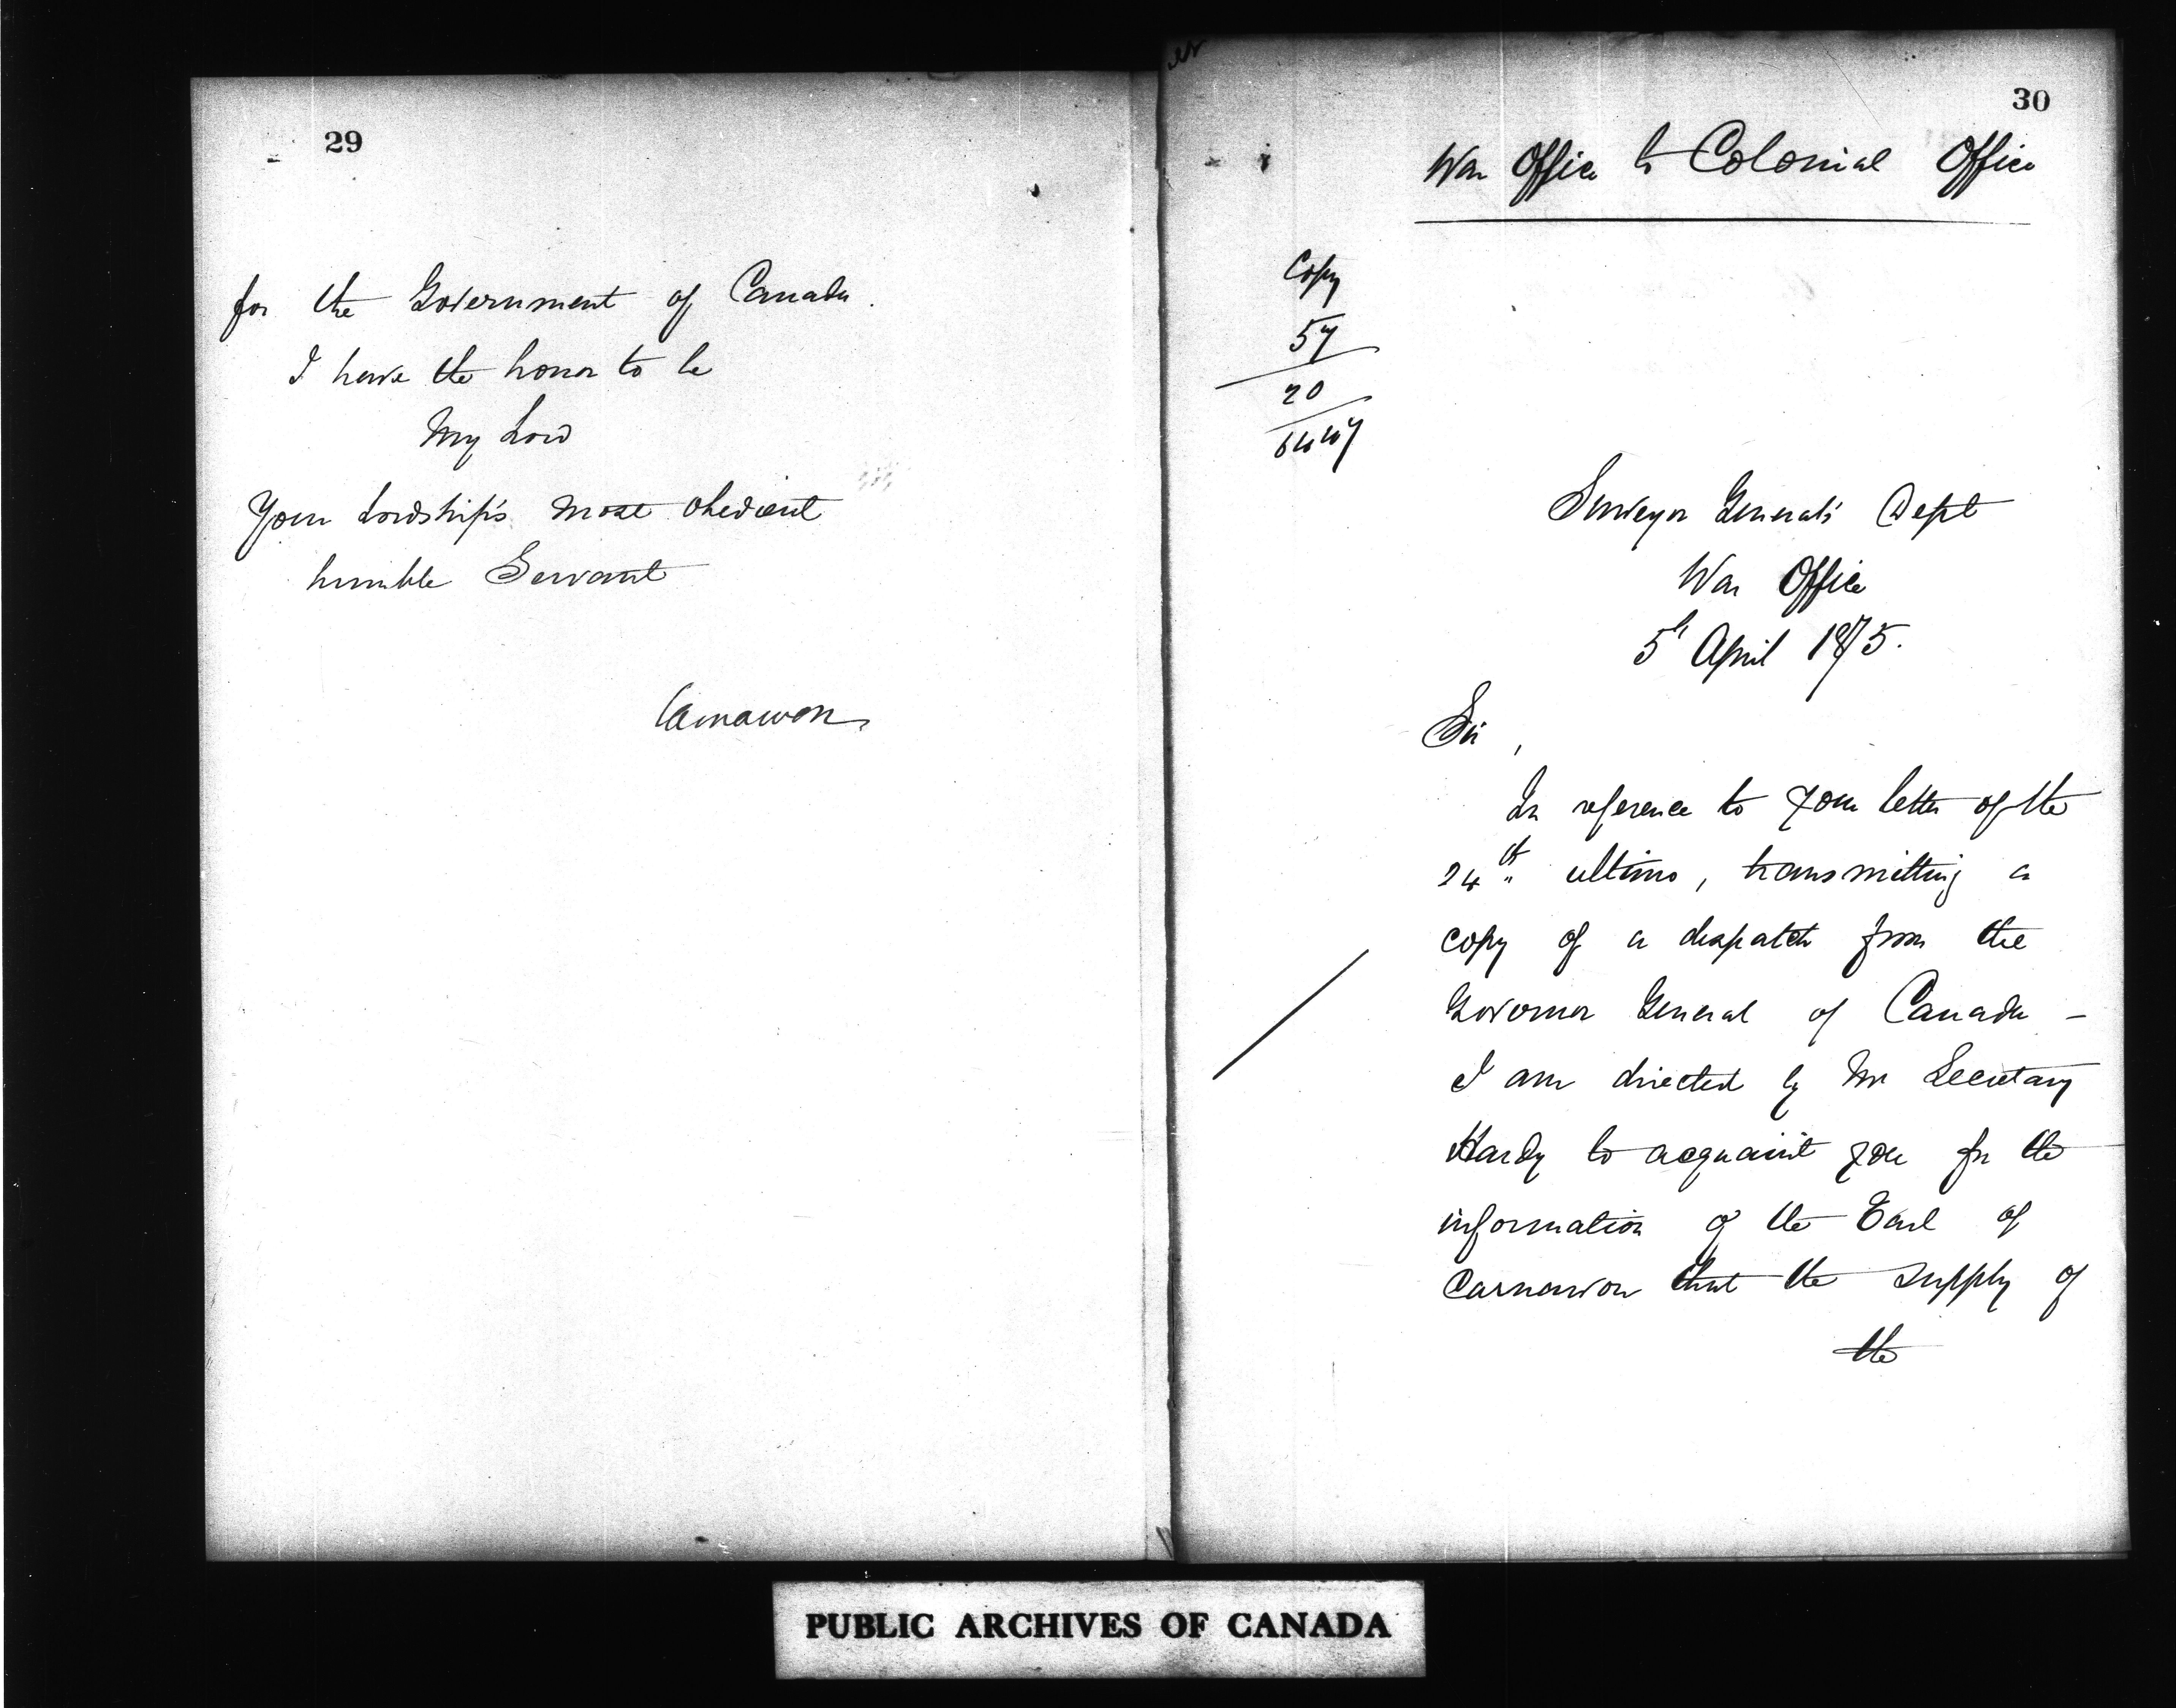 29
for the Government of Canada.
I have the honor to be
My Lord
Your Lordship's most obedient
humble Servant
Carnarvon
30
War Office to Colonial Office
Copy
57
20
Surveyor General's Dept
War Office
5th April 1875.
Sir,
In reference to your letter of the
24th ultimo, transmitting a
copy of a despatch from the
Governor General of Canada -
I am directed by Mr Secretary
Hardy to acquaint you for the
information of the Earl of
Carnarvon that the supply of
the
PUBLIC ARCHIVES OF CANADA